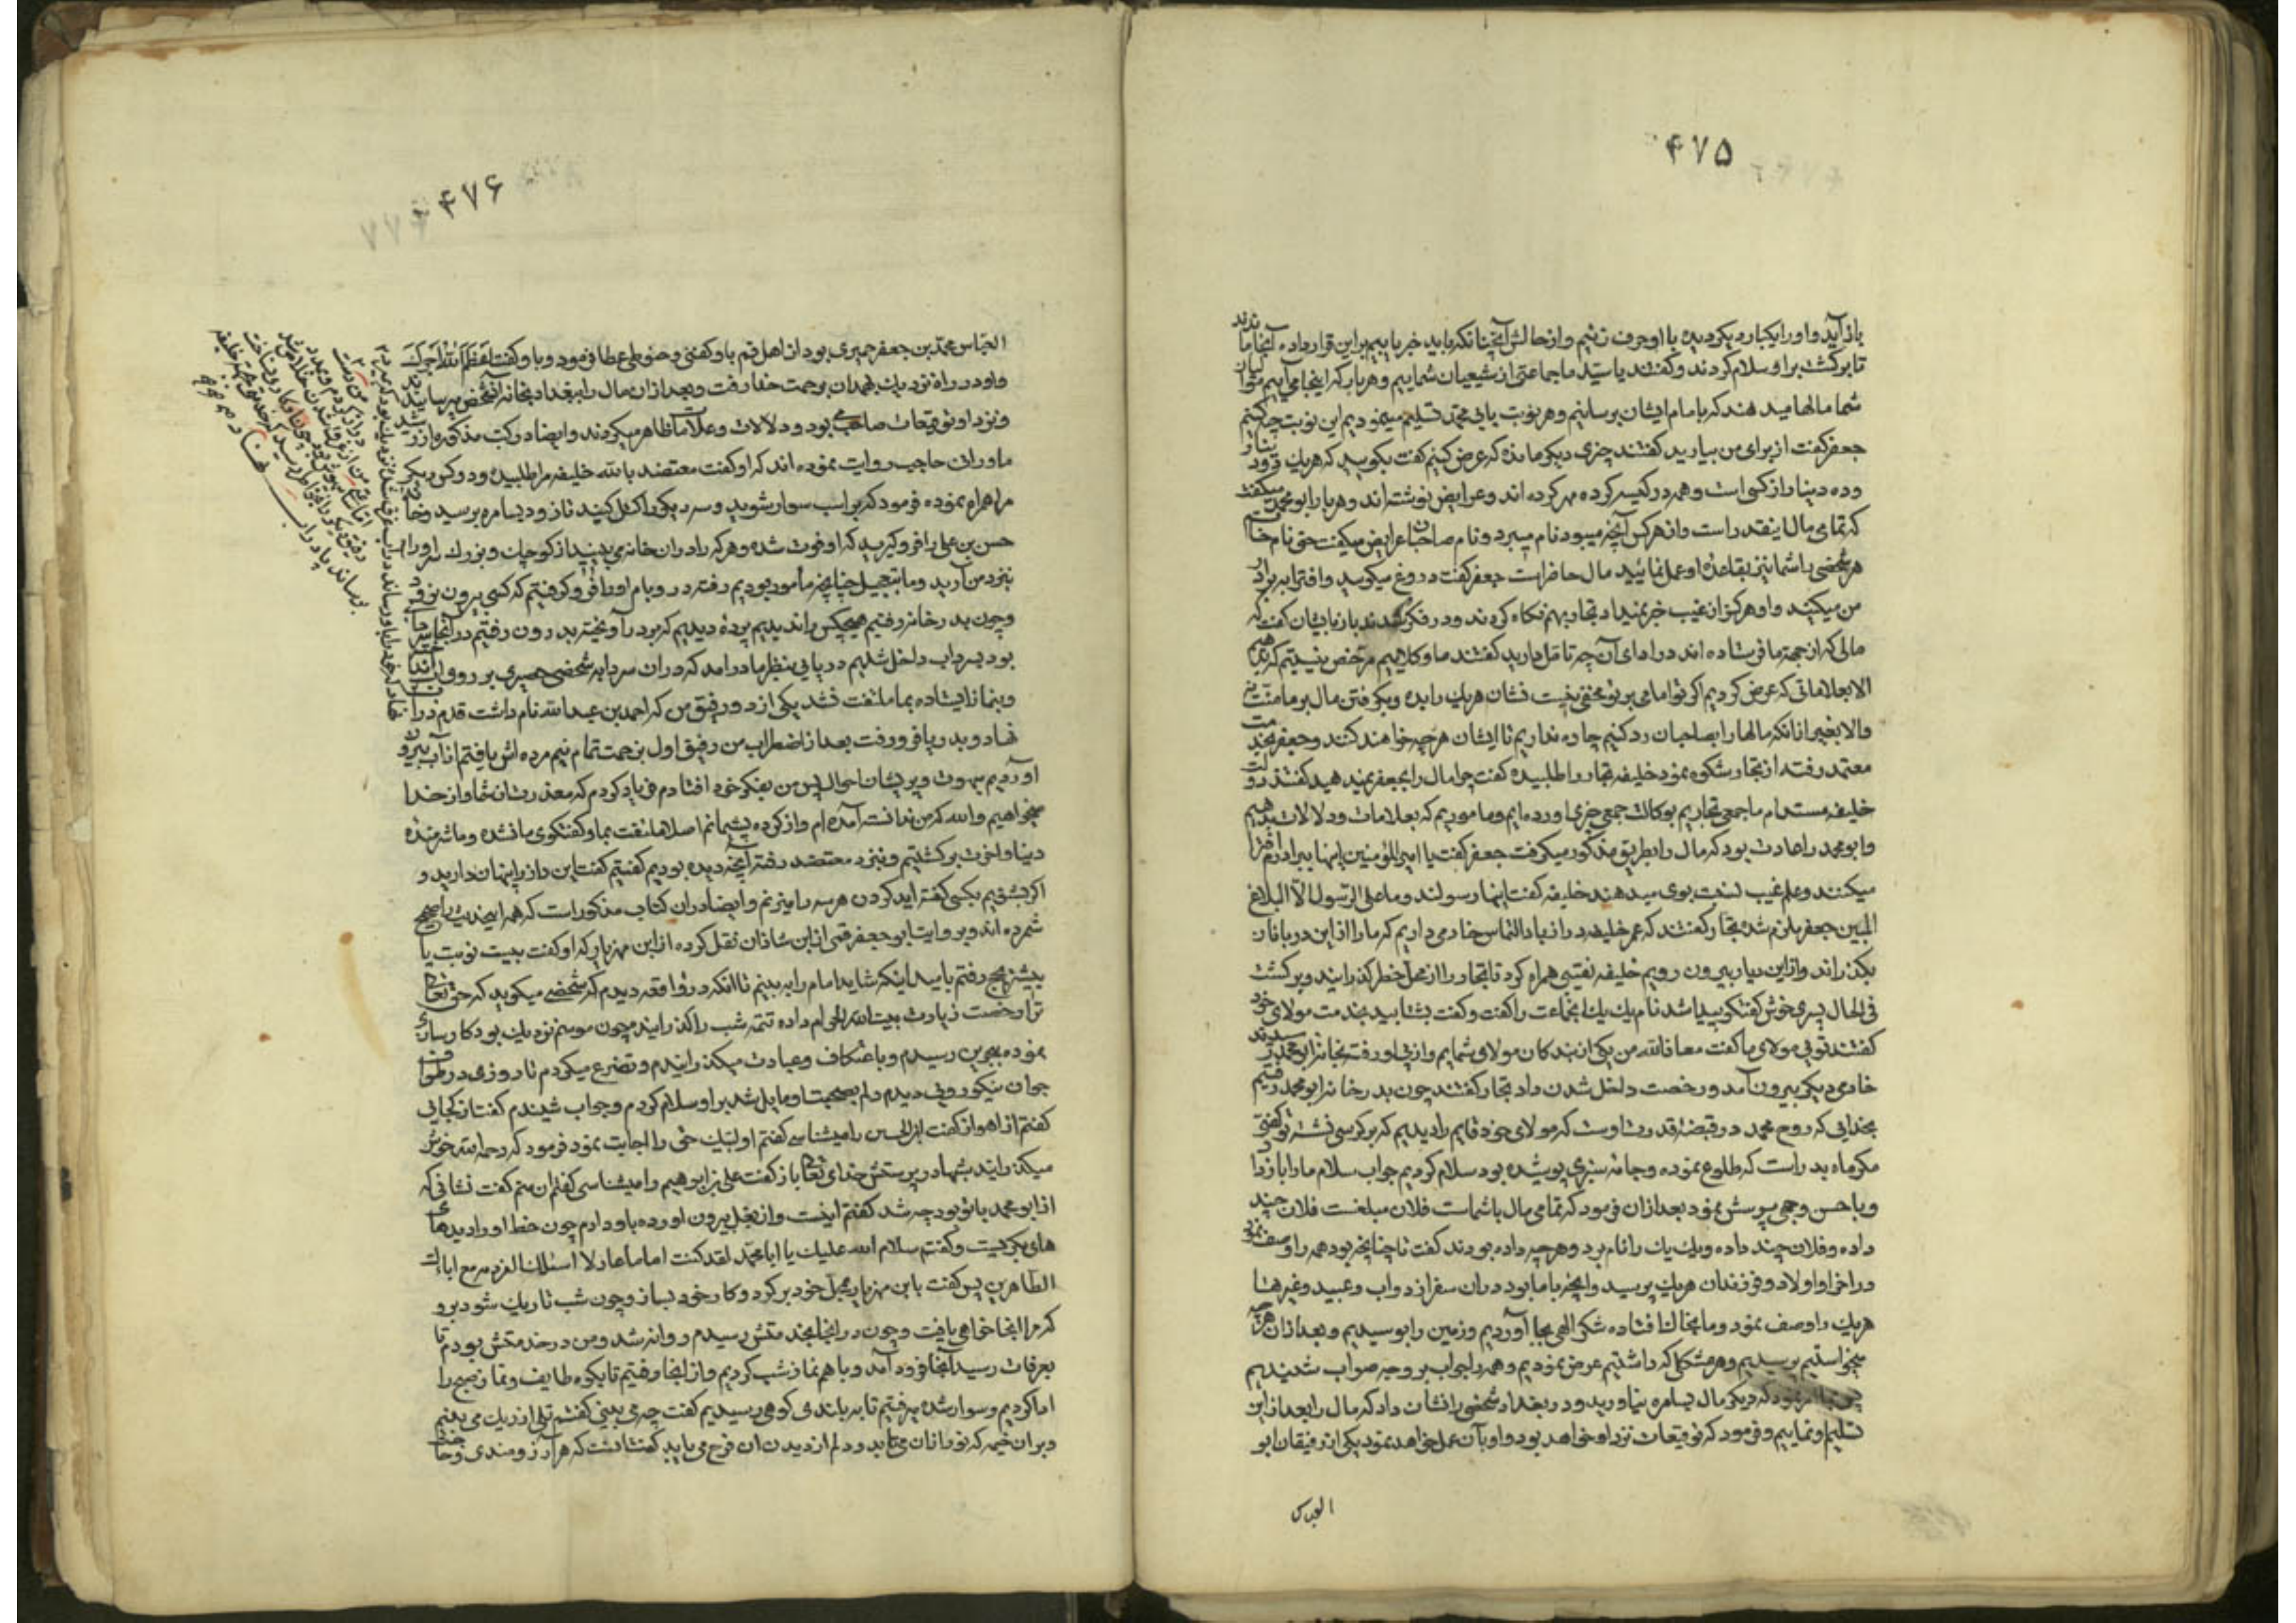 ۴۷۵
باز آید و او را یکبار دیگر دیده با او حرف زنیم و از حالش آنچنانکه باید خبر یابیم براین قرار داده آنجا ماندند
تا برگشت بر او سلام کردند و گفتند یا سیّد ما جماعتی از شیعیان شماییم و هر بار که اینجا می آییم
شما مالها میدهند که بامام ایشان برسانیم و هر نوبت بابی محمّد تسلیم مینمودیم این نوبت چه کنیم
جعفر گفت از برای من بیارید گفتند چیزی دیگر مانده که عرض کنیم گفت بگویید که هر یک دینار
و ده دینار از کسی است و همه در کیسه کرده مهر کرده اند و عرایض نوشته اند و هر بار ابو محمد میگفت
که تمامی مال اینقدر است و از هر کس آنچه میبود نام میبرد و نام صاحبان عرایض میگفت حتی نام
هر شخصی را شما نیز بقاعدهٔ او عمل نمائید مال حاضر است جعفر گفت دروغ میگویید و افترا ببرادر
من میکنید و او هرگز از غیب خبر نمیداد تجار بهم نگاه کردند و در فکر شدند باز بایشان گفت که
مالی که از جهة ما فرستاده اند در ادای آن چه تامّل دارید گفتند ما وکلاییم مرخص نیستیم که بدهیم
الا بعلاماتی که عرض کردیم اگر تو امامی بر تو مخفی نیست نشان هر یک را بده و بگرفتن مال بر ما منّت نه
والا بغیر از انکه مالها را بصاحبان رد کنیم چاره نداریم تا ایشان هر چه خواهند کنند و جعفر بخدمت
معتمد رفته از تجار شکوه نمود خلیفه تجار را طلبیده گفت چرا مال را بجعفر نمیدهید گفتند دولت
خلیفه مستدام ما جمعی تجاریم بوکالت جمعی چیزی اورده ایم و ماموریم که بعلامات و دلالات بدهیم
و ابو محمد را عادت بود که مال را بطریق مذکور میگرفت جعفر گفت یا امیر المؤمنین اینها ببرادرم افترا
میکنند و علم غیب نسبت بوی میدهند خلیفه گفت اینها رسولند و ما علی الرّسول الّا البلاغ
المبین جعفر ملزم شده تجار گفتند که عمر خلیفه دراز باد التماس خادمی داریم که ما را از این دربانان
بگذراند و از این دیار بیرون رویم خلیفه نقیبی همراه کرد تا تجار را از محل خطر گذرانید و برگشت
فی الحال پسری خوش گفتگو پیدا شد نام یک یک انجماعت را گفت و گفت بشتابید بخدمت مولای خود
گفتند تویی مولای ما گفت معاذ الله من یکی از بندگان مولای شمایم و از پی او رفته بخانه ابو محمد رسیدند
خادمی دیگر بیرون آمد و رخصت داخل شدن داد تجار گفتند چون بدر خانه ابو محمد رفتیم
بخدایی که روح محمد در قبضهٔ قدرت اوست که مولای خود قایم را دیدیم که بر کرسی نشسته تو گفتی
مگر ماه بدر است که طلوع نموده و جامه سبزی پوشیده بود سلام کردیم جواب سلام ما را باز داد
و با حسن وجهی پرسش نمود بعد ازان فرمود که تمامی مال با شماست فلان مبلغست فلان چند
داده و فلان چند داده و یک یک را نام برد و هر چه داده بودند گفت تا چنانچه بود همه را وصف نمود
در اخر او اولاد و فرزندان هر یک پرسید و انچه با ما بود دران سفر از دواب و عبید و غیرها
هر یک را وصف نمود و ما بخاک افتاده شکر الهی بجا آوردیم و زمین را بوسیدیم و بعد ازان هر چه
میخواستیم پرسیدیم و هر مشکل که داشتیم عرض نمودیم و همه را جواب بر وجه صواب شنیدیم
نمود که دیگر مال بسامره نیاورید و در بغداد شخصی را نشان داد که مال را بعد از این
تسلیم او نماییم و فرمود که توقیعات نزد او خواهد بود و او بآن عمل خواهد نمود یکی از رفیقان ابو
العباس
۴۷۶
العبّاس محمّد بن جعفر حمیری بود از اهل قم باو کفنی و حنوطی عطا فرمود و باو گفت اعظم الله اجرک
و او در راه نزدیک بهمدان برحمت خدا رفت و بعد ازان مال را ببغداد بخانه آنشخص میرسانیدند
و نزد او توقیعات صاحب بود و دلالات و علامات ظاهر میکردند و ایضا در کتب مذکوره از رشید
ماورانی حاجب روایت نموده اند که او گفت معتضد بالله خلیفه مرا طلبید و دو کس دیگر
مرا همراه نموده فرمود که بر اسب سوار شوید و سه دیگر را کتل کنید تا زود بسامره برسید و خانه
حسن بن علی را فرو گیرید که او فوت شده و هر که را دران خانه می بینید از کوچک و بزرگ
بنزد من آرید و ما بتعجیل چنانچه مأمور بودیم رفته در و بام او را فرو گرفتیم که کسی بیرون نرود
و چون بدر خانه رفتیم هیچکس را ندیدیم پردهٔ دیدیم که بر در آویخته بدرون رفتیم در آنجا سردابه
بود بسرداب داخل شدیم دریایی بنظر ما درامد که دران سردابه شخصی حصیری بر روی اب انداخته
و بنماز ایستاده بما ملتفت نشد یکی از دو رفیق من که احمد بن عبد الله نام داشت قدم در آب
نهاد و بدریا فرو رفت بعد از اضطراب من و رفیق اول بزحمت تمام نیم مرده اش یافتیم از آب بیرون
آوردیم مبهوت و پریشان احوال پس من بفکر خود افتادم فریاد کردم که معذرت از شما و از خدا
میخواهیم و الله که من ندانسته آمده ام و از کرده پشیمانم اصلا ملتفت بما و گفتگوی ما نشده و ما شرمنده
دنیا و اخرت برگشتیم و بنزد معتضد رفته آنچه دیده بودیم گفتیم گفت این راز را پنهان دارید و
اگر بشنویم بکسی گفته اید گردن هر سه را میزنم و ایضا دران کتاب مذکور است که همه اینحدیث را صحیح
شمرده اند و بروایت ابو جعفر قمی از ابن شاذان نقل کرده از ابن مهزیار که او گفت بیست نوبت یا
بیشتر بحج رفتم بامید اینکه شاید امام را ببینم تا آنکه در واقعه دیدم که شخصی میگوید که حق تعالی
ترا رخصت زیارت بیت الله الحرام داده تتمه شب را گذرانیدم چون موسم نزدیک بود کارسازی
نموده بحرمین رسیدم و باعتکاف و عبادت میگذرانیدم و تضرع میکردم تا روزی در طواف
جوان نیکو رویی دیدم دلم بصحبت او مایل شد بر او سلام کردم و جواب شنیدم گفت از کجایی
گفتم از اهواز گفت ابن الحسن را میشناسی گفتم او لبّیک حق را اجابت نمود فرمود که رحمه الله خوش
میگذرانید شبها در پرستش خدای تعالی باز گفت علی بن ابراهیم را میشناسی گفتم ان منم گفت نشانی که
از ابو محمد با تو بود چه شد گفتم اینست و از بغل بیرون اورده باو دادم چون خط او را دید های
های بگریست و گفتم سلام الله علیک یا ابا محمّد لقد کنت اماما عادلا اسکنک الفردوس مع ابائک
الطّاهرین پس گفت یا بن مهزیار بمحل خود برگرد و کار خود بساز و چون شب تاریک شود برو
که مرا اینجا خواهی یافت و چون در انجا بخدمتش رسیدم روانه شد و من در خدمتش بودم تا
بعرفات رسید آنجا فرود آمد و با هم نماز شب کردیم و از انجا رفتیم تا بکوه طایف و نماز صبح را
ادا کردیم و سوار شده میرفتیم تا ببلندی کوهی رسیدیم گفت چیزی می بینی گفتم تلی از ریک می بینم
و بران خیمه که نور ازان می تابد و دلم از دیدن ان فرح می یابد گفت انست که هر آرزومندی و